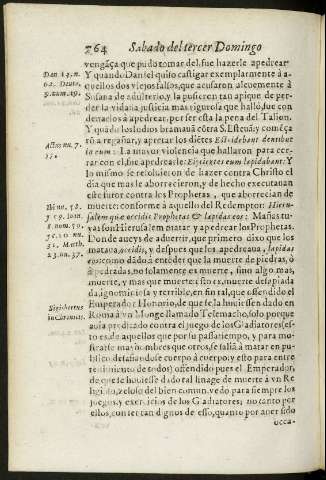 764 Sabado del tercer Domingo
vengāça que pudo tomar del, fue hazerle apedrear
Y quando Daniel quiso castigar exemplarmente à a-
quellos dos viejos falsos, que acusaron alevemente à
Susana de adulterio, y la pusieron tan apique de per-
der la vida: la justicia mas rigurosa que halló, fue con
denarlos à apedrear, por ser esta la pena del Talion.
Y quādo los Iudios bramauā cōtra S. Esteuā, y comēça
rō a regañar, y apretar los dietes
eum: La mayor violencia que hallaron para
rar con el, fue apedrearle: Eijcientes eum lapidabant: Y
lo mismo se resoluieron de hazer contra Christo el
dia que mas le aborrecieron, y de hecho executauan
este furor contra los Prophetas, que aborrecian de
muerte: conforme à aquello del Redemptor: Hieru-
salem quæ occidis Prophetas & lapidas eos: Mañas tu-
yas son Hierusalem matar y apedrear los Prophetas.
Donde aueys de aduertir, que primero dixo que los
mataua, occidis, y despues que los apedreaua, lapidas
eos: como dādo à entēder que la muerte de piedras, ò
apedradas, no solamente es muerte, sino algo mas,
muerte, y mas que muerte: esto es, muerte desapiada
da, ignominiosa y terrible, en fin tal, que ofendido el
Emperador Honorio, de que se la huuiessen dado en
Roma à vn Monge llamado Telemacho, solo porque
auia predicado contra el juego de los Gladiatores (es-
to es, de aquellos que por su passatiempo, y para mo-
strarse mas hombres que otros, se salia à matar en pu-
blico desafio de cuerpo à cuerpo: y esto para entre
tenimiento de todos) ofendido pues el Emperador,
de que se huuiesse dado tal linage de muerte à vn Re
ligioso, zeloso del bien comun, vedo para siempre los
juegos, y exercicios de los Gladiatores; no tanto por
ellos, con ser tan dignos de esso, quanto por auer sido
occa-
Dan 13. n.
62. Deute.
Acto. nu. 7.
Math.
23. nu. 37.